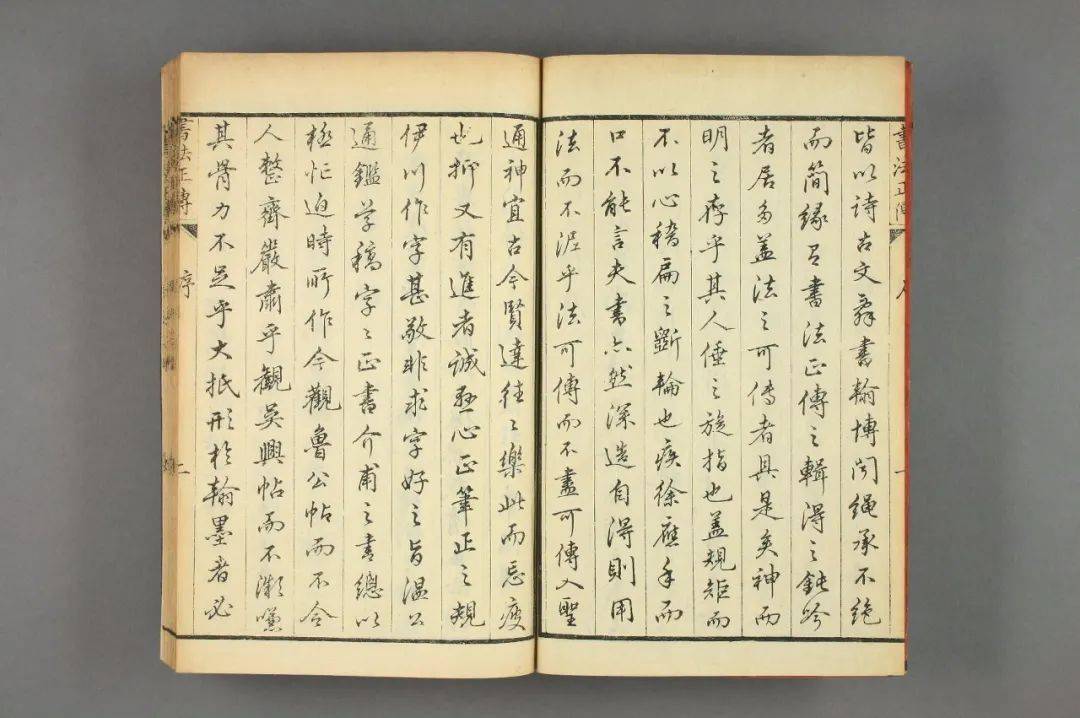 書法正傳
皆以詩古文辭書翰博聞繩承不絶
而簡緣之書法正傳之輯得之鈍吟
者居多蓋法之可傳者具是矣神而
明之存乎其人倕之旋指也蓋規矩而
不以心稽扁之斲輪也疾徐應手而
口不能言夫書亦然深造自得則用
法而不泥乎法可傳而不盡可傳入聖
通神宜古今賢達往々樂此而忘疲
也抑又有進者誠懸心正筆正之規
伊川作字甚敬非求字好之旨溫公
通鑑學稿字々正書介甫之書總以
極忙迫時所作今觀魯公帖而不令
人整齊嚴肅乎觀吳興帖而不漸嘅
其骨力不足乎大抵形於翰墨者必
書法正傳
序
二